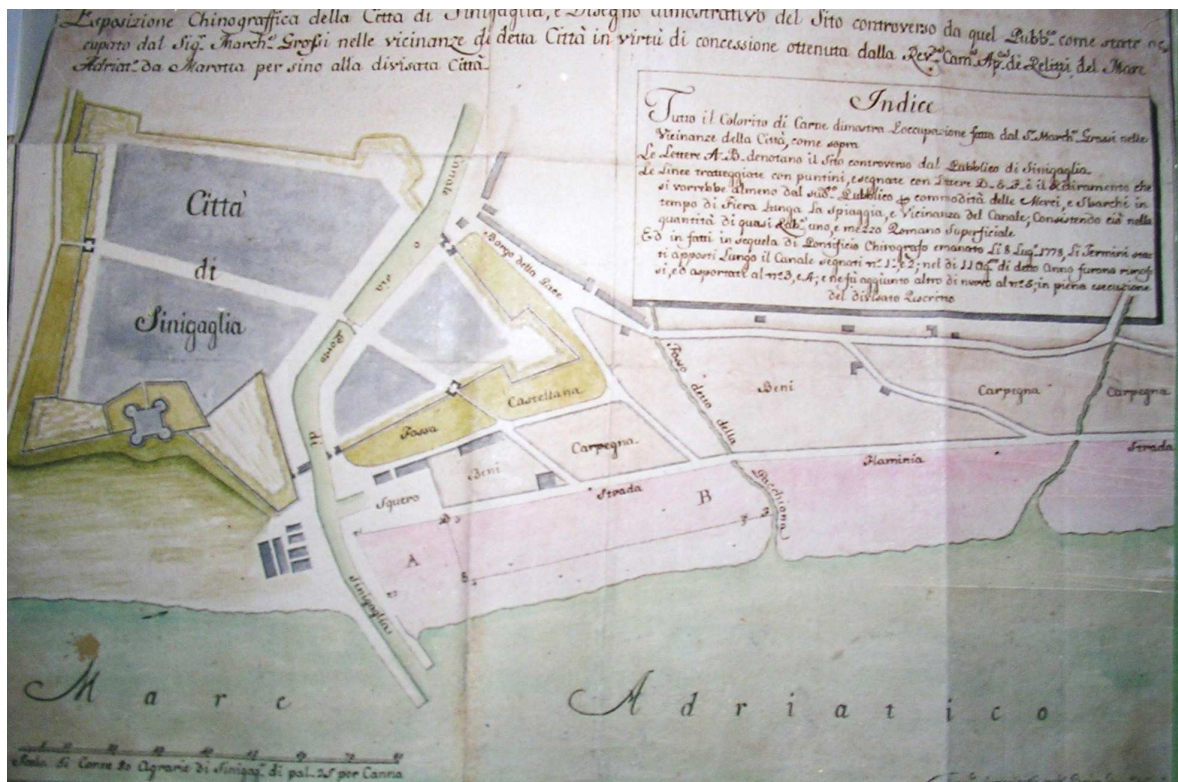 Esposizione Chinograffica della Città di Sinigaglia, e Disegno dimostrativo del Sito controverso da quel Pubb.co come stato oc-
cupato dal Sig.r March.e Grossi nelle vicinanze di detta Città in virtù di concessione ottenuta dalla Rev.da Cam.a Ap.ca di Relitti del Mare
Adriat.o da Marotta per sino alla divisata Città.
Indice
Tutto il Colorito di Carne dimostra l'occupazione fatta dal S.r March.e Grossi nelle
Vicinanze della Città, come sopra
Le Lettere A. B. denotano il Sito controverso dal Pubblico di Sinigaglia
Le Linee tratteggiate con puntini, e segnate con Lettere D. E. F. è il diramento che
si vorrebbe almeno dal sud.o Pubblico p commodità delle Merci, e Sbarchi in
tempo di Fiera Lunga La Spiaggia, e Vicinanza del Canale; Consistendo ciò nella
quantità di quasi Rub. uno, e mezzo Romano Superficiale
Ed in fatti in sequela di Pontificio Chirografo emanato Li 8 Lug.o 1778, Li Termini sta-
ti apposti Lungo il Canale segnati n.o 1. e 2; nel di 11 Ag.o di detto Anno furono rimos-
si, ed asportati al n.o 3, e 4; e ne fù aggiunto altro di nuovo al n.o 5; in piena esecuzione
del divisato Rescritto
Città
di
Sinigaglia
Canale
o
sia
Porto
di
Sinigaglia
Borgo della Pace
Fossa
Castellana
Squero
Beni
Carpegna
Fosso detto della
Beni
Carpegna
Carpegna
Strada
Flaminia
Strada
A
B
D
Mare Adriatico
Scala di Canne 80 Agrarie di Sinigag.a di pal. 25 per Canna